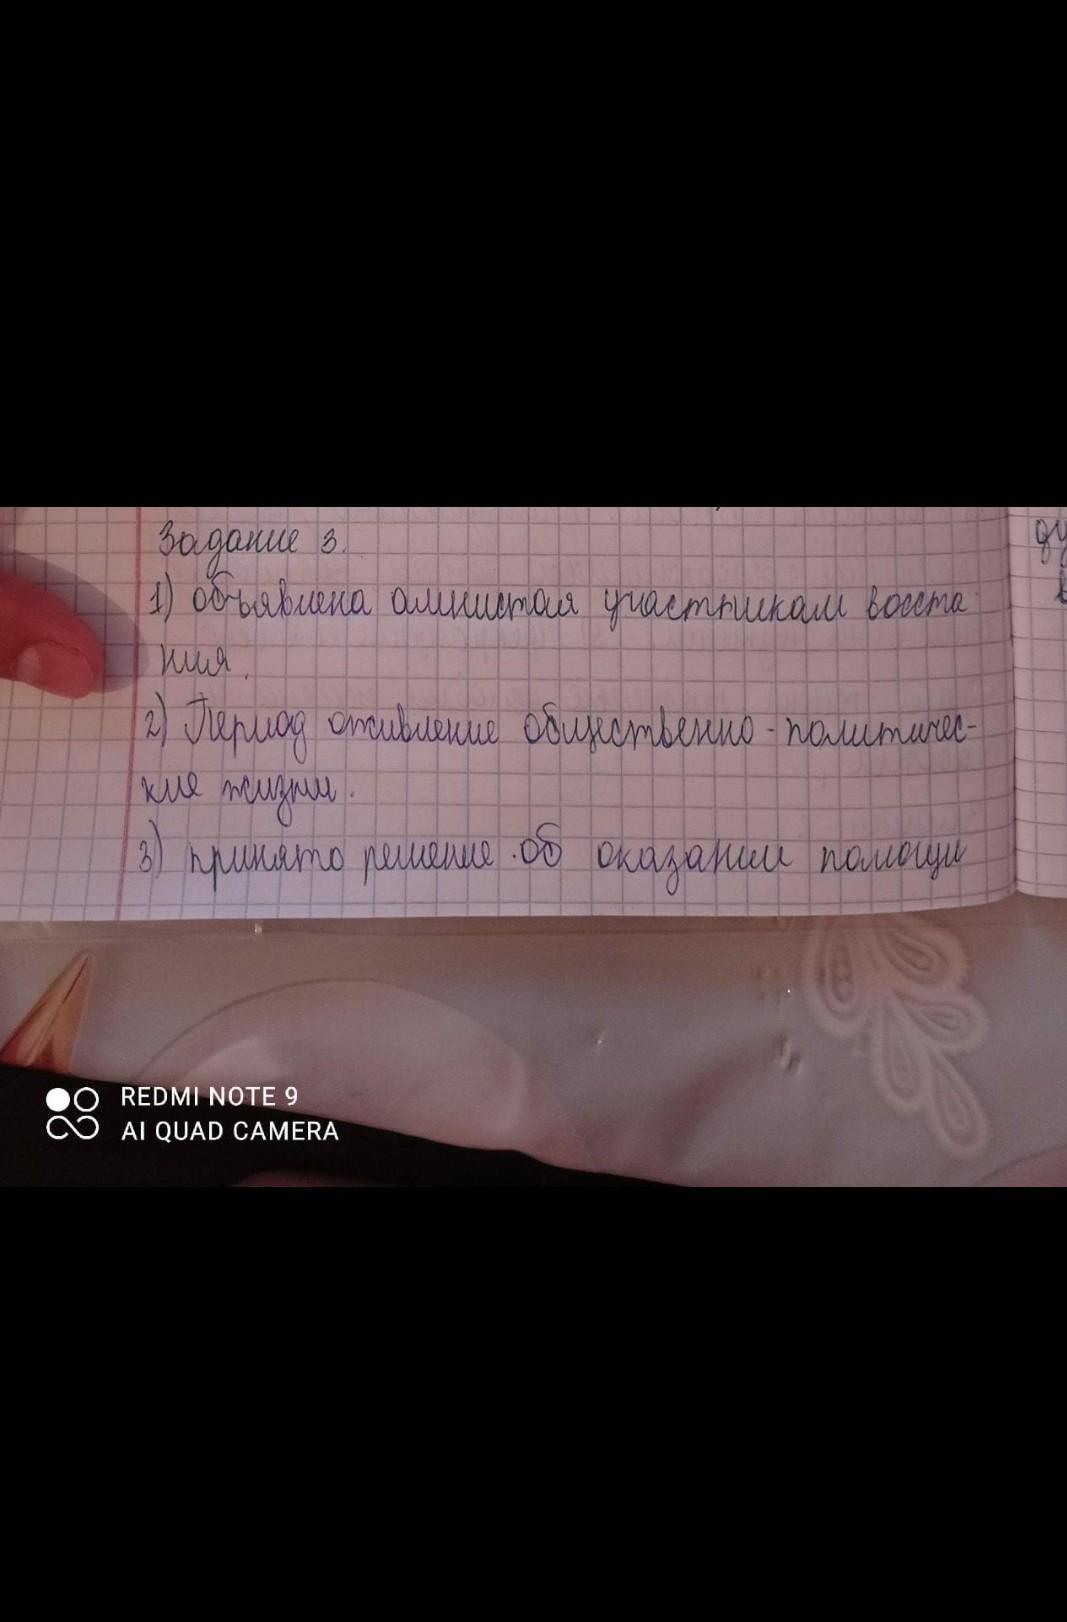 Задание 3.
1) объявлена амнистая участникам восста
ния.
2) Период оживление общественно-политичес-
кие жизни.
3) принято решение об оказании помощи
ду
в
REDMI NOTE 9
AI QUAD CAMERA